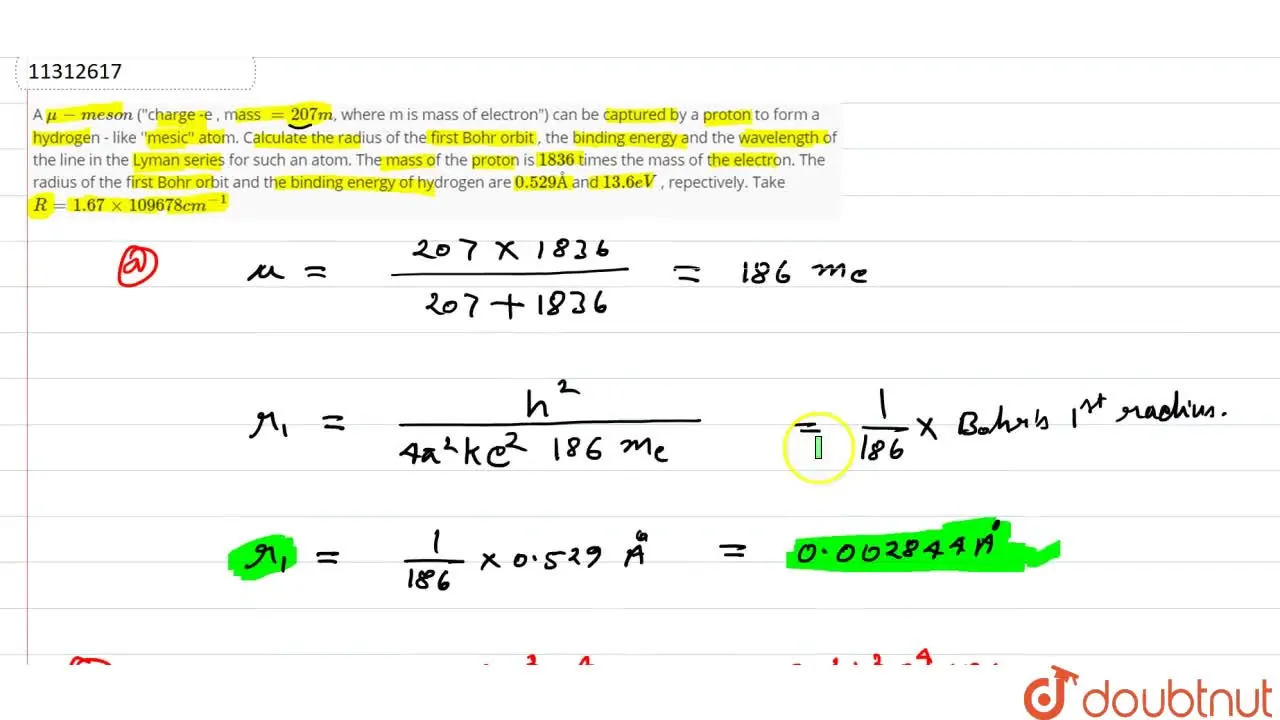 11312617
A μ − meson ("charge -e , mass = 207m, where m is mass of electron") can be captured by a proton to form a
hydrogen - like ''mesic'' atom. Calculate the radius of the first Bohr orbit , the binding energy and the wavelength of
the line in the Lyman series for such an atom. The mass of the proton is 1836 times the mass of the electron. The
radius of the first Bohr orbit and the binding energy of hydrogen are 0.529Å and 13.6eV , repectively. Take
R = 1.67 × 109678cm⁻¹
a) μ = 207 × 1836 / 207 + 1836 = 186 me
r₁ = h² / 4π²ke² 186 me = 1/186 × Bohr's 1st radius.
r₁ = 1/186 × 0.529 Å = 0.002844 Å
doubtnut